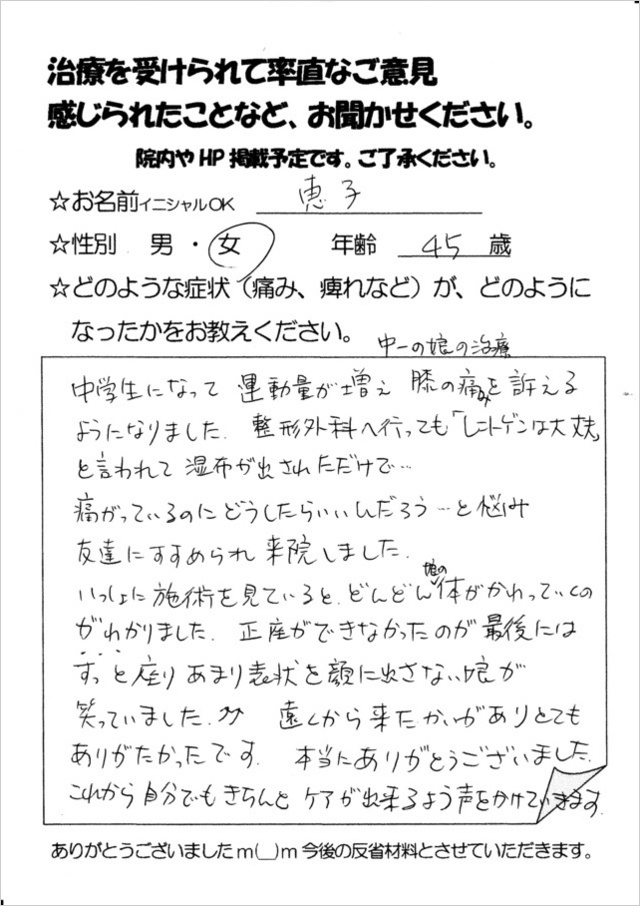 治療を受けられて率直なご意見
感じられたことなど、お聞かせください。
院内やHP掲載予定です。ご了承ください。
☆お名前イニシャルOK 恵子
☆性別 男・女 年齢 45 歳
☆どのような症状（痛み、痺れなど）が、どのように
なったかをお教えください。
中一の娘の治療
中学生になって 運動量が増え 膝の痛みを訴える
ようになりました。整形外科へ行っても「レントゲンは大丈夫」
と言われて 湿布が出されただけで…
痛がっているのにどうしたらいいんだろう…と悩み
友達にすすめられ 来院しました。
いっしょに施術を見ていると、どんどん娘の体がかわっていくの
がわかりました。正座ができなかったのが最後には
すっと座り あまり表状を顔に出さない娘が
笑っていました。 遠くから来たかいがありとても
ありがたかったです。本当にありがとうございました。
これから自分でもきちんと ケアが出来るよう声をかけていきます。
ありがとうございましたm(__)m今後の反省材料とさせていただきます。